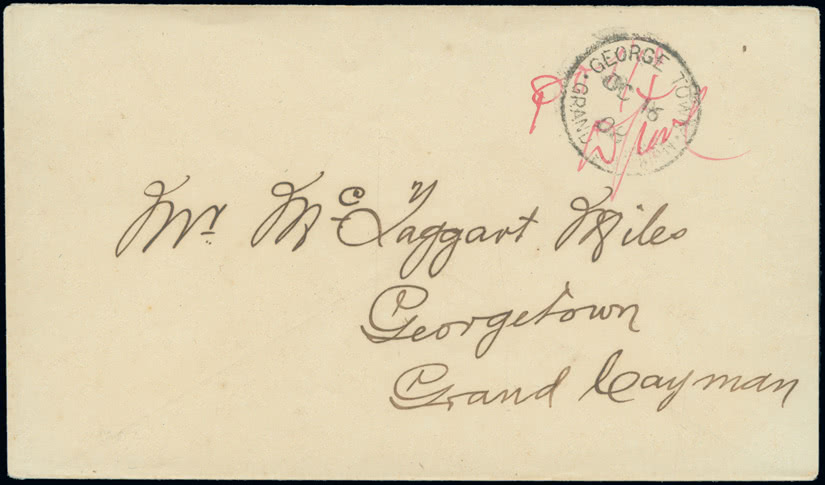 GEORGE TOWN
GRAND
OC 16
Mr. McTaggart Miles
Georgetown
Grand Cayman